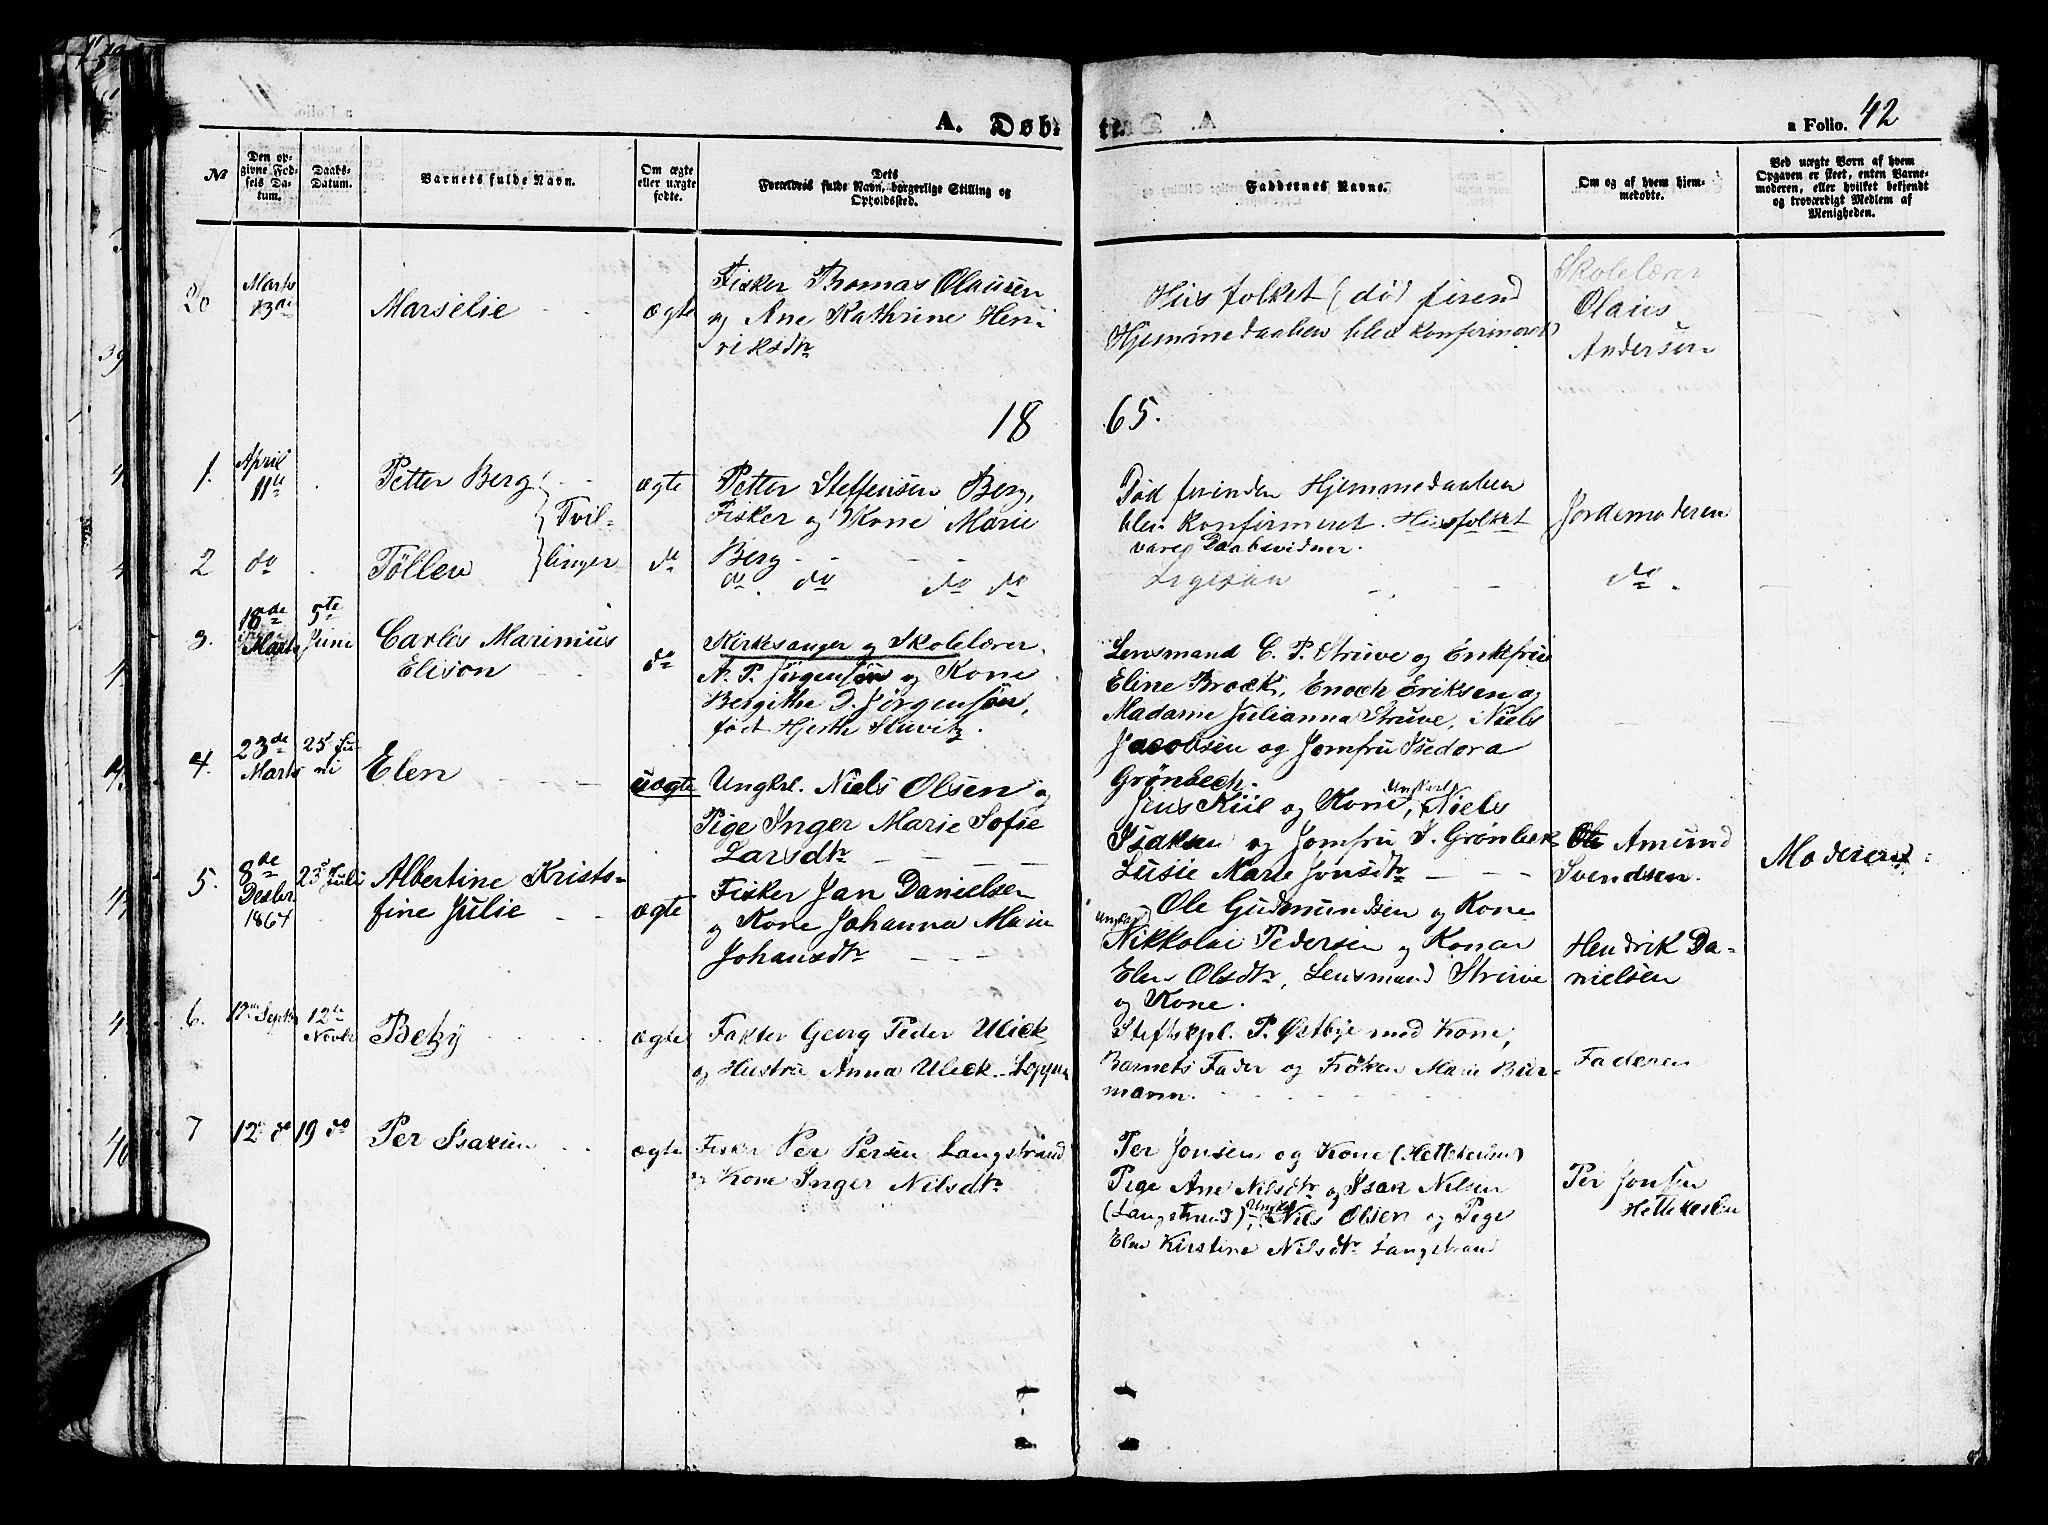 A. Døbte.
a Folio. 42
№
Den opgivne Fødsels Datum.
Daabs-Datum.
Barnets fulde Navn.
Om ægte eller uægte fødte.
Dets Forældres fulde Navn, borgerlige Stilling og Opholdssted.
Faddernes Navne.
Om og af hvem hjemmedøbte.
Ved uægte Børn af hvem Opgaven er skeet, enten Barnemoderen, eller hvilket bekjendt og troværdigt Medlem af Menigheden.
20 Marts 13de Marselie ægte
Fisker Thomas Olausen
og Ane Kathrine Hen-
riksdtr
Husfolket (død) førend
Hjemmedaaben blev konfirmeret)
Skolelærer
Olaus
Andersen
1865.
1. April 11te Petter Berg ægte
Petter Steffensen Berg,
Fisker og Kone Marie
Berg
Død førinden Hjemmedaaben
blev konfirmeret. Husfolket
vare Daabsvidner.
Jordemoderen
Tvil-
linger
2 do Tøllev do
do do do do
Ligesaa
do
3. 18de Marts 5te Juni Carlos Marinius
Elison do
Kirkesanger og Skolelærer
N. P. Jørgensøn og Kone
Bergithe D. Jørgensøn,
født Hjerth
Lensmand C. P. Struve og Enkefrue
Eline Brock, Enoch Eriksen og
Madame Julianna Struve, Niels
Jacobsen og Jomfru Isedora
Grønbech.
4. 23de Marts 25 Ju-
ni Elen uægte
Ungkrl. Niels Olsen og
Pige Inger Marie Sofie
Larsdtr
Jens Kiil og Kone, Ungkarl Niels
Isaksen og Jomfru I. Grønbeck
Lusie Marie Jonsdtr
Amund
Svendsen.
Moderen
5. 8de Desbr 1864 23 Juli Albertine Kristo-
fine Julie ægte
Fisker Jan Danielsen
og Kone Johanna Marie
Johansdtr
Ole Gudmundsen og Kone
Ungkarl Nikkolai Pedersen og Konen
Elen Olsdtr, Lensmand Struve
og Kone.
Hendrik Da-
nielsen
6. 17 Septbr 12te Novbr Betzy ægte
Faktor Georg Peder Ulick
og Hustru Anna Ulick Loppen
Stiftskpl. P. Østbye med Kone,
Barnets Fader og Frøken Marie Bur-
mann.
Faderen
7 12 do 19 do Per Isakim ægte
Fisker Per Persen Langstrand
og Kone Inger Nilsdtr
Per Jonsen og Kone
Pige Ane Nilsdtr og Isak Nilsen
(Langstrand), Ungkl Nils Olsen og Pige
Elen Kirstine Nilsdtr Langstrand
Per Jonsen